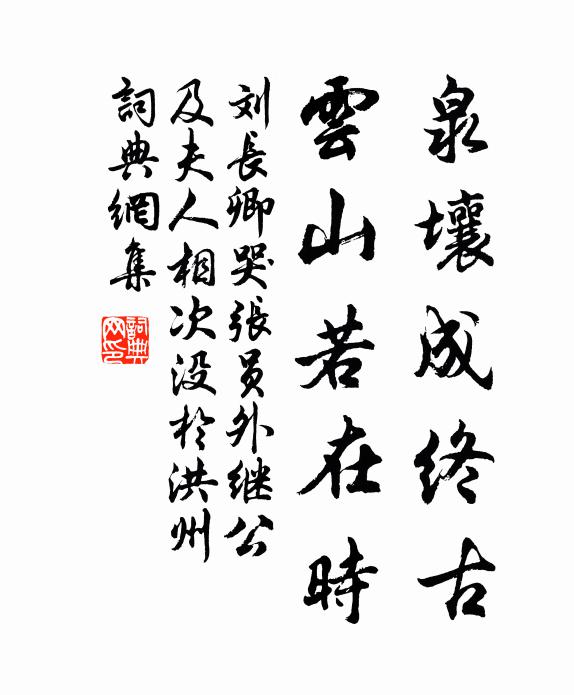 泉壤成终古
雲山若在時
刘長卿哭張員外继公
及夫人相次没於洪州
詞典網集
詞典
网印